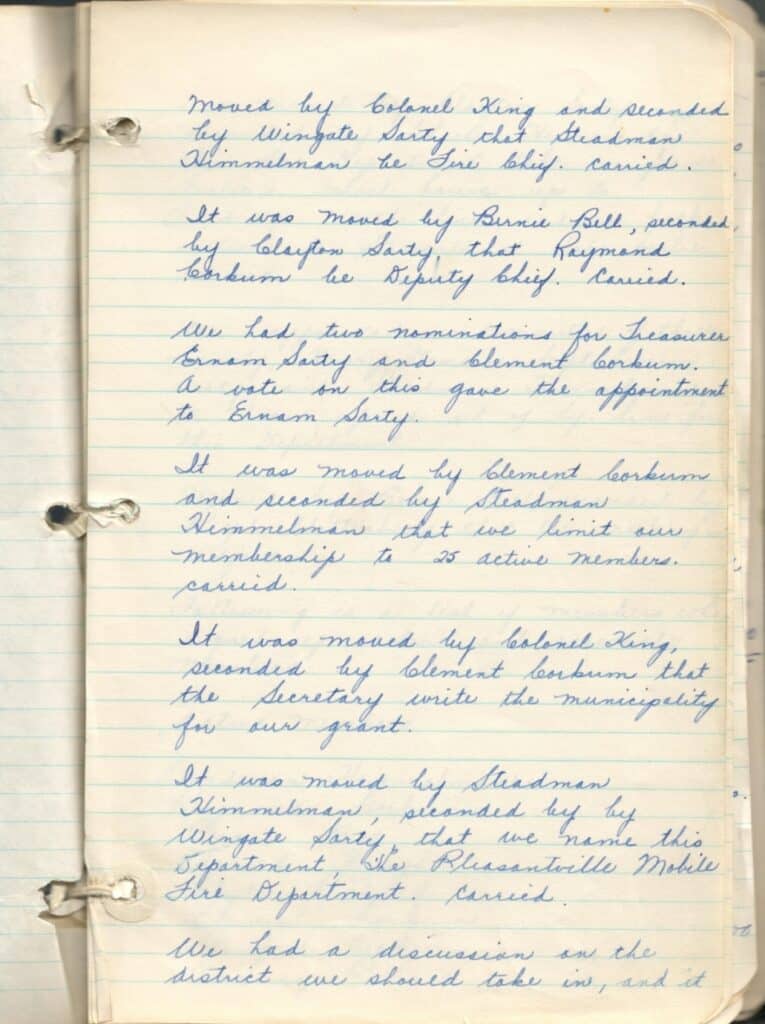 Moved by Colonel King and seconded
by Wingate Sarty that Steadman
Himmelman be Fire Chief. Carried.
It was moved by Bernie Bell, seconded
by Clayton Sarty, that Raymond
Corkum be Deputy Chief. Carried.
We had two nominations for Treasurer
Ernam Sarty and Clement Corkum.
A vote on this gave the appointment
to Ernam Sarty.
It was moved by Clement Corkum
and seconded by Steadman
Himmelman that we limit our
membership to 25 active members.
carried.
It was moved by Colonel King,
seconded by Clement Corkum that
the Secretary write the municipality
for our grant.
It was moved by Steadman
Himmelman, seconded by by
Wingate Sarty, that we name this
Department, The Pleasantville Mobile
Fire Department. Carried.
We had a discussion on the
district we should take in, and it